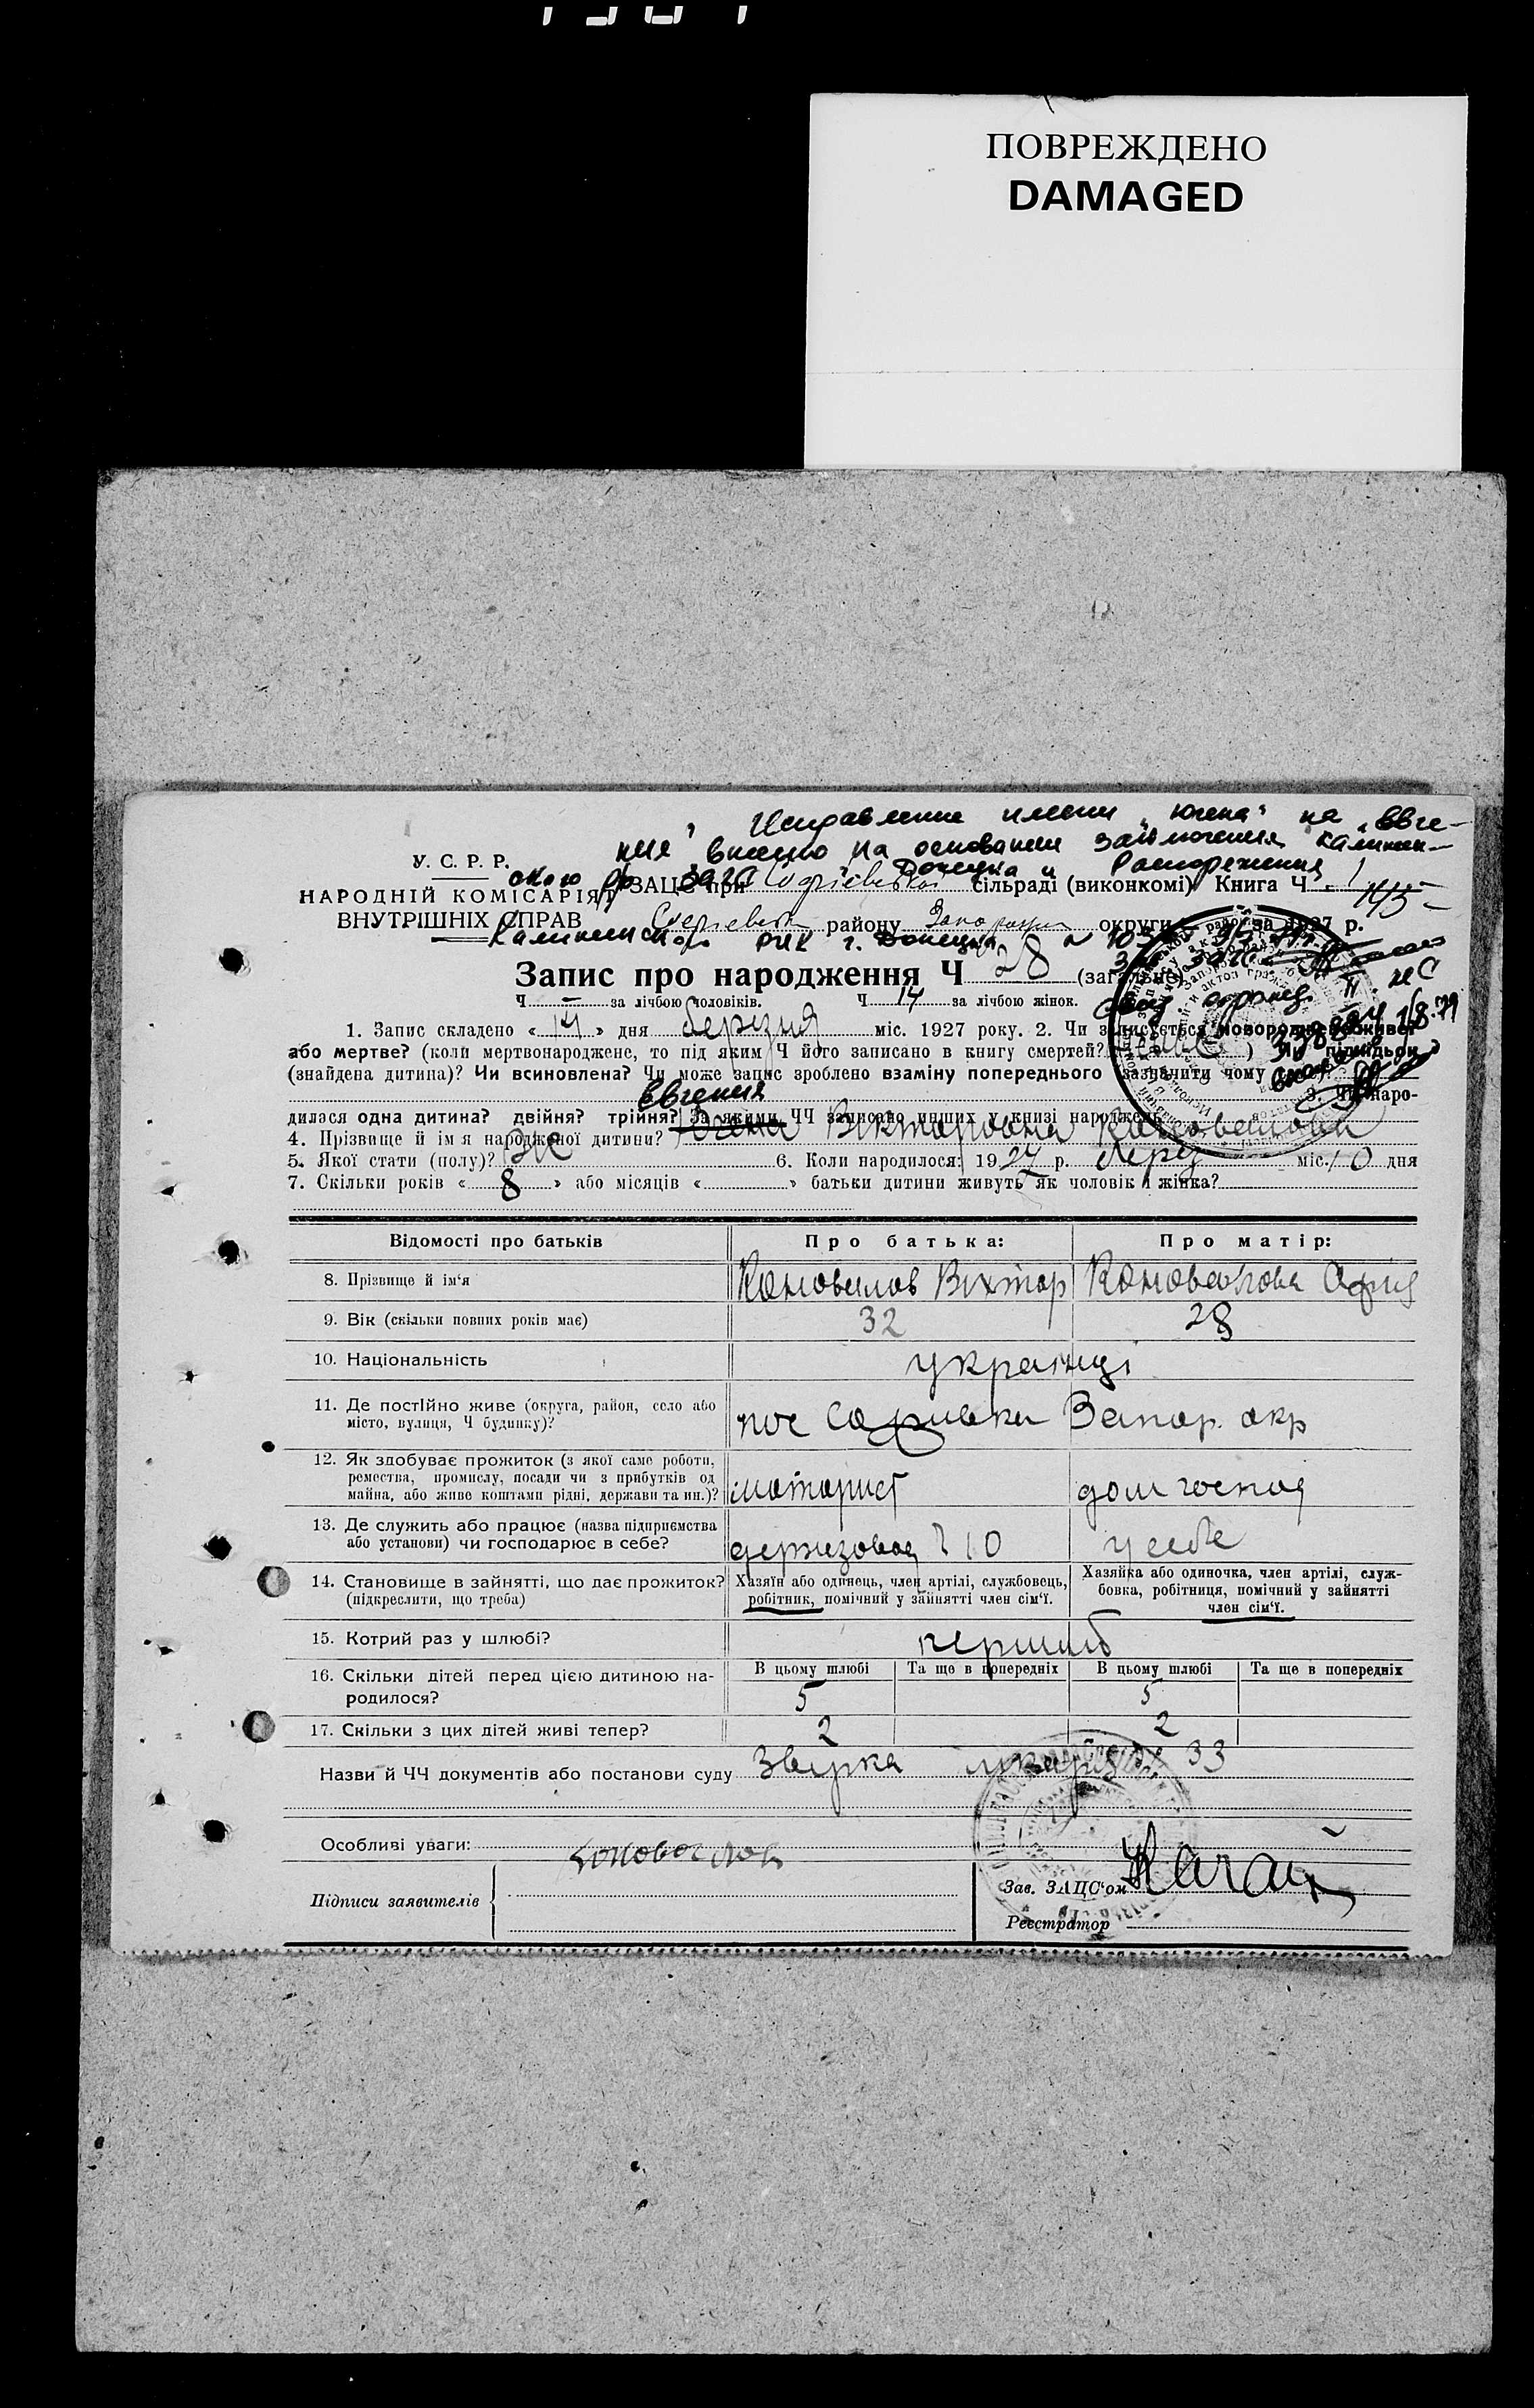 ПОВРЕЖДЕНО
DAMAGED
Исправление имени „Югена“ на „Евге-
ния“ внесено на основании заключения Калинин-
ского р/б ЗАГС г. Донецка и распоряжения
Калининского РИК г. Донецка
У. С. Р. Р.
НАРОДНІЙ КОМІСАРІЯТ
ВНУТРІШНІХ СПРАВ
ЗАЦС при Софіевської сільраді (виконкомі) Книга Ч 1
145
Софіевськ району Запорізьк округи за 1927 р.
Запис про народження Ч 28 (загальне)
Ч – за лічбою чоловіків. Ч 14 за лічбою жінок.
1. Запис складено « 14 » дня березня міс. 1927 року. 2. Чи записується новороджене живе
або мертве? (коли мертвонароджене, то під яким Ч його записано в книгу смертей? ) Чи підкидьок
(знайдена дитина)? Чи всиновлена? Чи може запис зроблено взаміну попереднього (зазначити чому саме)
3. Чи наро-
дилася одна дитина? двійня? трійня? За якими ЧЧ записано инших у книзі народжень
Евгения
4. Прізвище й ім я народженої дитини? Югена Вікторовна Коновалови
5. Якої стати (полу)? Ж 6. Коли народилося: 1927 р. берез міс. 10 дня
7. Скільки років « 8 » або місяців « » батьки дитини живуть як чоловік і жінка?
Відомості про батьків Про батька: Про матір:
8. Прізвище й ім‘я Коновалов Віктор Коновалова Софія
9. Вік (скільки повних років має) 32 28
10. Національність українці
11. Де постійно живе (округа, район, село або
місто, вулиця, Ч будинку)? пос Софиевка Запор. окр
12. Як здобуває прожиток (з якої саме роботи,
ремества, промислу, посади чи з прибутків од
майна, або живе коштами рідні, держави та ин.)? моторист дом господ
13. Де служить або працює (назва підприємства
або установи) чи господарює в себе? держзавод Ч 10 у себе
14. Становище в зайнятті, що дає прожиток?
(підкреслити, що треба)
Хазяїн або одинець, член артілі, службовець,
робітник, помічний у зайнятті член сім‘ї.
Хазяйка або одиночка, член артілі, служ-
бовка, робітниця, помічний у зайнятті
член сім‘ї.
15. Котрий раз у шлюбі? перший
16. Скільки дітей перед цією дитиною на-
родилося?
В цьому шлюбі Та ще в попередніх В цьому шлюбі Та ще в попередніх
5 5
17. Скільки з цих дітей живі тепер? 2 2
Назви й ЧЧ документів або постанови суду Звірка лікаря 33
Особливі уваги:
Коновалов
Підписи заявителів
Зав. ЗАЦС‘ом
Реєстратор